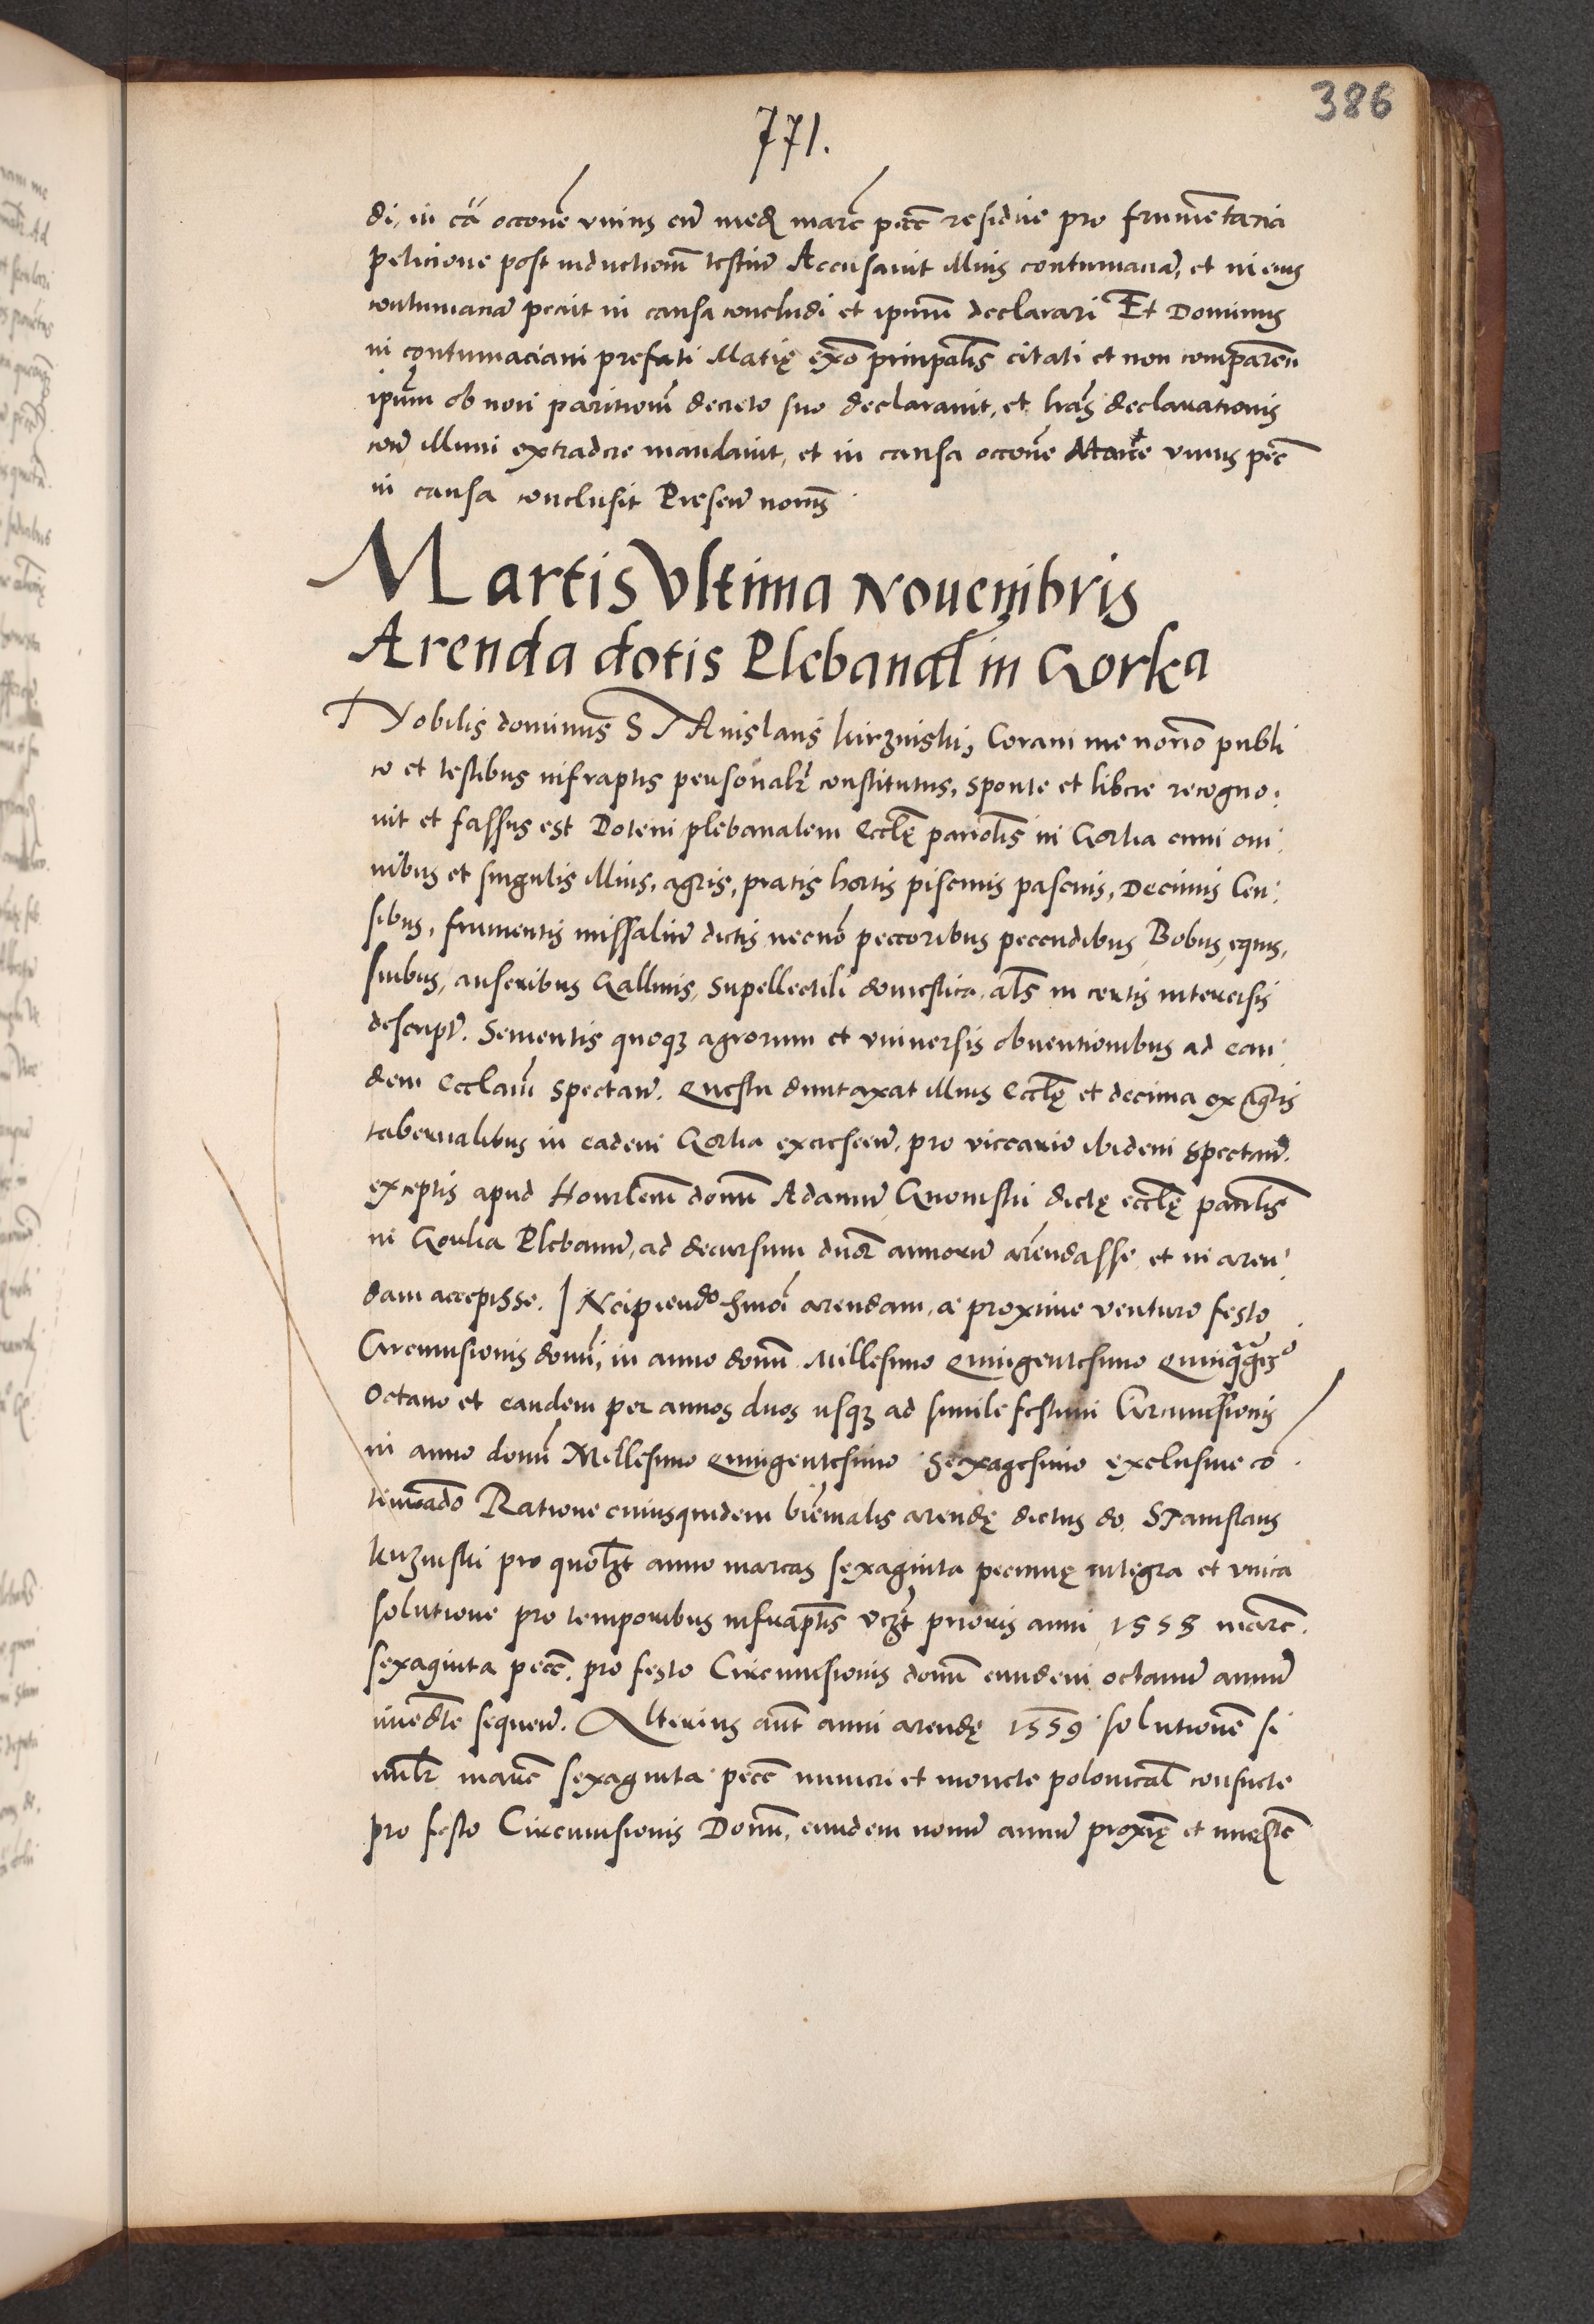 386
771.
di, in cā occoñe vnius cū med marc̄ pecc̄ residue pro frumentaria
peticione post inductionem testiū Accusauit illius contumaciā, et in eius
contumaciā peciit in causa concludi et ipsum declarari Et Dominus
in contumaciam prefati Matię exō prinpalis citati et non comparen̄
ipsum ob non paritionem decreto suo declarauit, et lras declarationis
illum extradere mandauit, et in causa occoñe Marce vnius pec̄
in causa conclusit Presen̄ nomīs
Martis Vltima Nouembris
Arenda dotis Plebanal in Gorka
Nobilis dominus STAnislaus kirzniski, Coram me norīo publi
co et testibus infraptis personalr̄ constitutus, sponte et libere recogno:
uit et fassus est Dotem plebanalem Ecclę parrolis in Gorka cum om:
nibus et singulis illius, agris, pratis hortis piscinis pascuis, Decimis Cen:
sibus, frumentis missaliū dictis necnō peccoribus pecudibus Bobus, equis,
suibus, anseribus Gallinis, supellectili domestica, als in certis intercisis
descript̄. Sementis quoqʒ agrorum et vniuersis obuentionibus ad ean:
dem Ecclaim spectan̄. Questu duntaxat illius Ecclę et decima ex agris
tabernalibus in eadem Gorka excrescen̄, pro viccario ibidem spectan̄.
exceptis apud Honrlem domū Adamū Gnoinski dictę ecclę parrlis
in Gorka Plebanū, ad decursum duor̄ annorū arendasse et in aren:
dam accepisse. INcipiendo hmoi arendam, a proxime venturo festo
Circumcisionis domī, in anno domī Millesimo Quingentesimo Quinq̄gis°
Octauo et eandem per annos duos usqʒ ad simile festum Circumcissionis
in anno domī Millesimo Quingentesimo Sexagesimo exclusiue cō
tinuādo Ratione cuiusquidem biennalis arendę dictus do. STanislaus
kirznski pro quolʒt anno marcas sexaginta pecunię integra et vnica
solutione pro temporibus infraptis vcʒt prioris anni 1558 marc̄.
sexaginta pecc̄. pro festo Circumcisionis domī eundem octauū annū
imedte sequen̄. Alterius aut̄ anni arendę 1559 solutionē si
milr̄ marc̄ sexaginta pecc̄ numeri et monete polonical consuete
pro festo Circumcisionis Domī, eundem nonū annū proxię et imedte